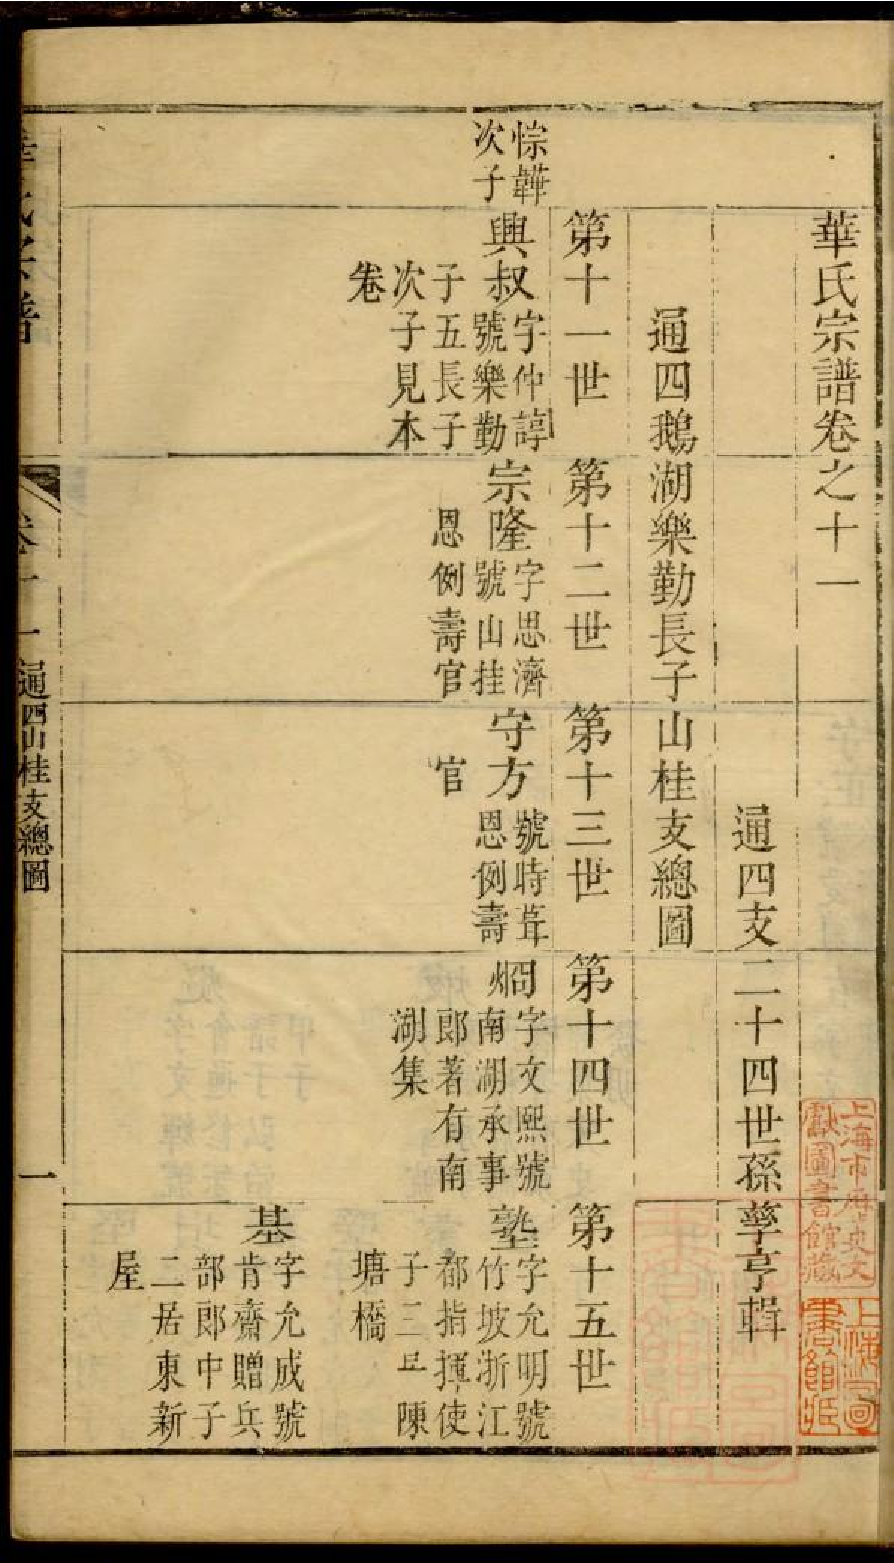 華氏宗譜卷之十一
通四支二十四世孫孳亨輯
通四鵝湖樂勤長子山桂支總圖
第十一世
第十二世
第十三世
第十四世
第十五世
悰韡
次子
興叔
字仲諄
號樂勤
子五長子
次子見本
卷
宗隆
字思濟
號山桂
恩例壽官
守方
號時葺
恩例壽
官
字文熙號
南湖承事
郎著有南
湖集
塾
字允明號
竹坡浙江
都指揮使
子三居陳
塘橋
基
字允成號
肯齋贈兵
部郎中子
二居東新
屋
華氏宗譜
卷十一
通四山桂支總圖
一
上海市歷史文
獻圖書館藏
上海圖
書館藏